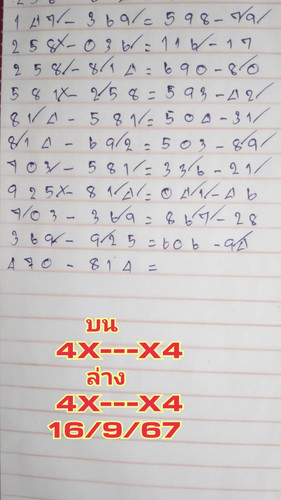 147/-369/=598-79/
258x-036/=116/-17
258/-8/14=690-80
581x-258=593-42/
81/4-581/=504-31/
8/14-69/2=503-89/
703/-581/=33/6-21/
925x-81/4/=04/1/-46
7/03-36/9=867/-28
369x-9/25=606-94
470-814=
บน
4X---X4
ล่าง
4X---X4
16/9/67